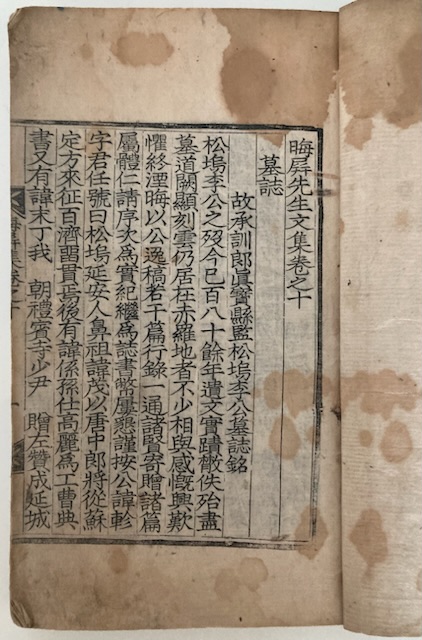 晦屛先生文集卷之十
墓誌
故承訓郎眞寶縣監松塢李公墓誌銘
松塢李公之歿今已百八十餘年遺文實蹟散佚殆盡
墓道闕顯刻雲仍居在赤羅地者不少相與感慨興歎
懼終湮晦以公逸稿若干篇行錄一通諸賢寄贈諸篇
屬體仁請序次爲實紀繼爲誌書幣屢懇謹按公諱軫
字君任號曰松塢延安人鼻祖諱茂以唐中郎將從蘇
定方來征百濟留貫焉後有諱係孫仕高麗爲工曹典
書又有諱末丁我 朝禮賓寺少尹 贈左贊成延城